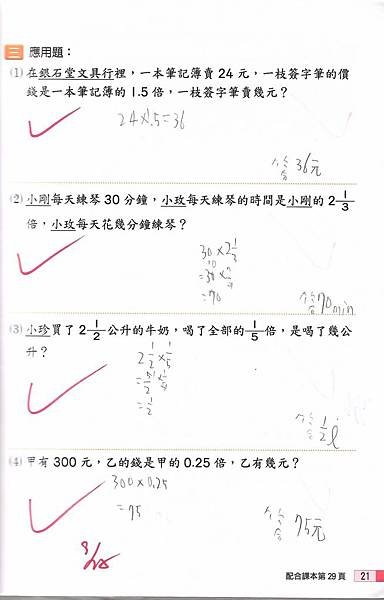 三 應用題：
(1) 在銀石堂文具行裡，一本筆記簿賣 24 元，一枝簽字筆的價
錢是一本筆記簿的 1.5 倍，一枝簽字筆賣幾元？
24×1.5=36
答 36元
(2) 小剛每天練琴 30 分鐘，小玫每天練琴的時間是小剛的 2 1/3
倍，小玫每天花幾分鐘練琴？
30×2 1/3
=70
答 70min
(3) 小珍買了 2 1/2 公升的牛奶，喝了全部的 1/5 倍，是喝了幾公
升？
2 1/2 × 1/5
= 5/2 × 1/5
= 1/2
答 1/2 l
(4) 甲有 300 元，乙的錢是甲的 0.25 倍，乙有幾元？
300×0.25
=75
答 75元
配合課本第 29 頁 21